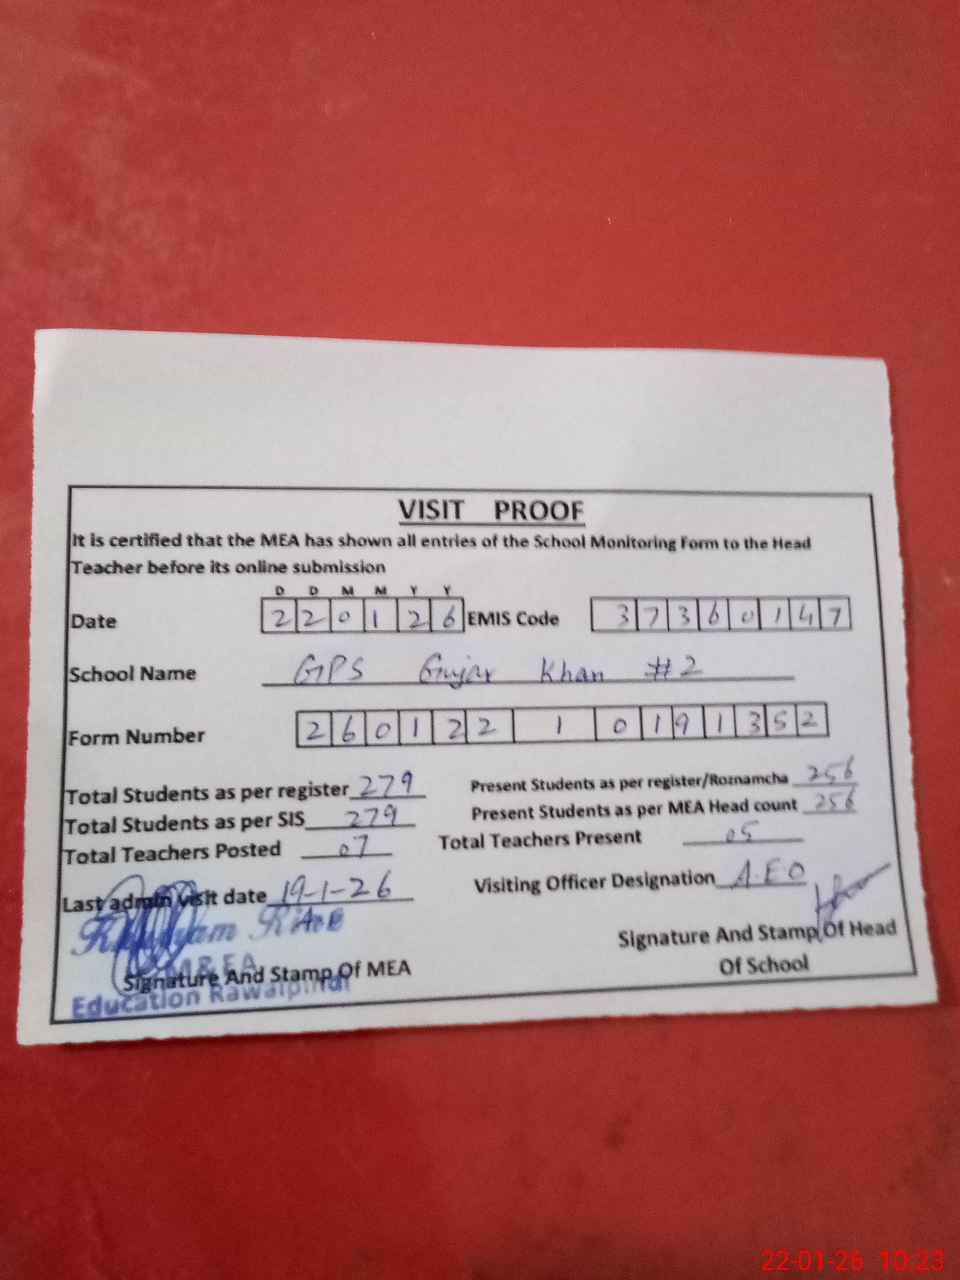 VISIT PROOF
It is certified that the MEA has shown all entries of the School Monitoring Form to the Head
Teacher before its online submission
D D M M Y Y
Date 2 2 0 1 2 6 EMIS Code 3 7 3 6 0 1 4 7
School Name GPS Gujar Khan #2
Form Number 2 6 0 1 2 2 1 0 1 9 1 3 5 2
Total Students as per register 279 Present Students as per register/Roznamcha 256
Total Students as per SIS 279 Present Students as per MEA Head count 256
Total Teachers Posted 07 Total Teachers Present 05
Last admin visit date 19-1-26 Visiting Officer Designation A.E.O
Signature And Stamp Of MEA
Education Rawalpindi
Signature And Stamp Of Head
Of School
22-01-26 10:23